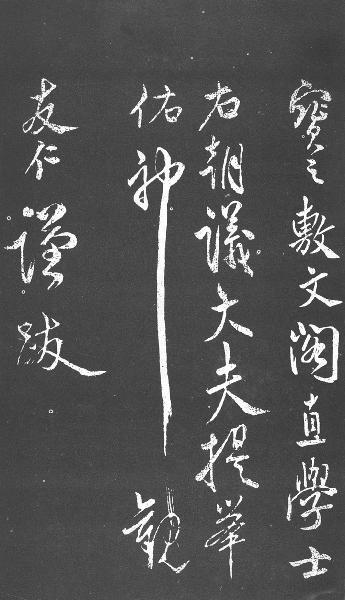 寶之敷文閣直學士
右朝議大夫提舉
佑神觀
友仁謹跋